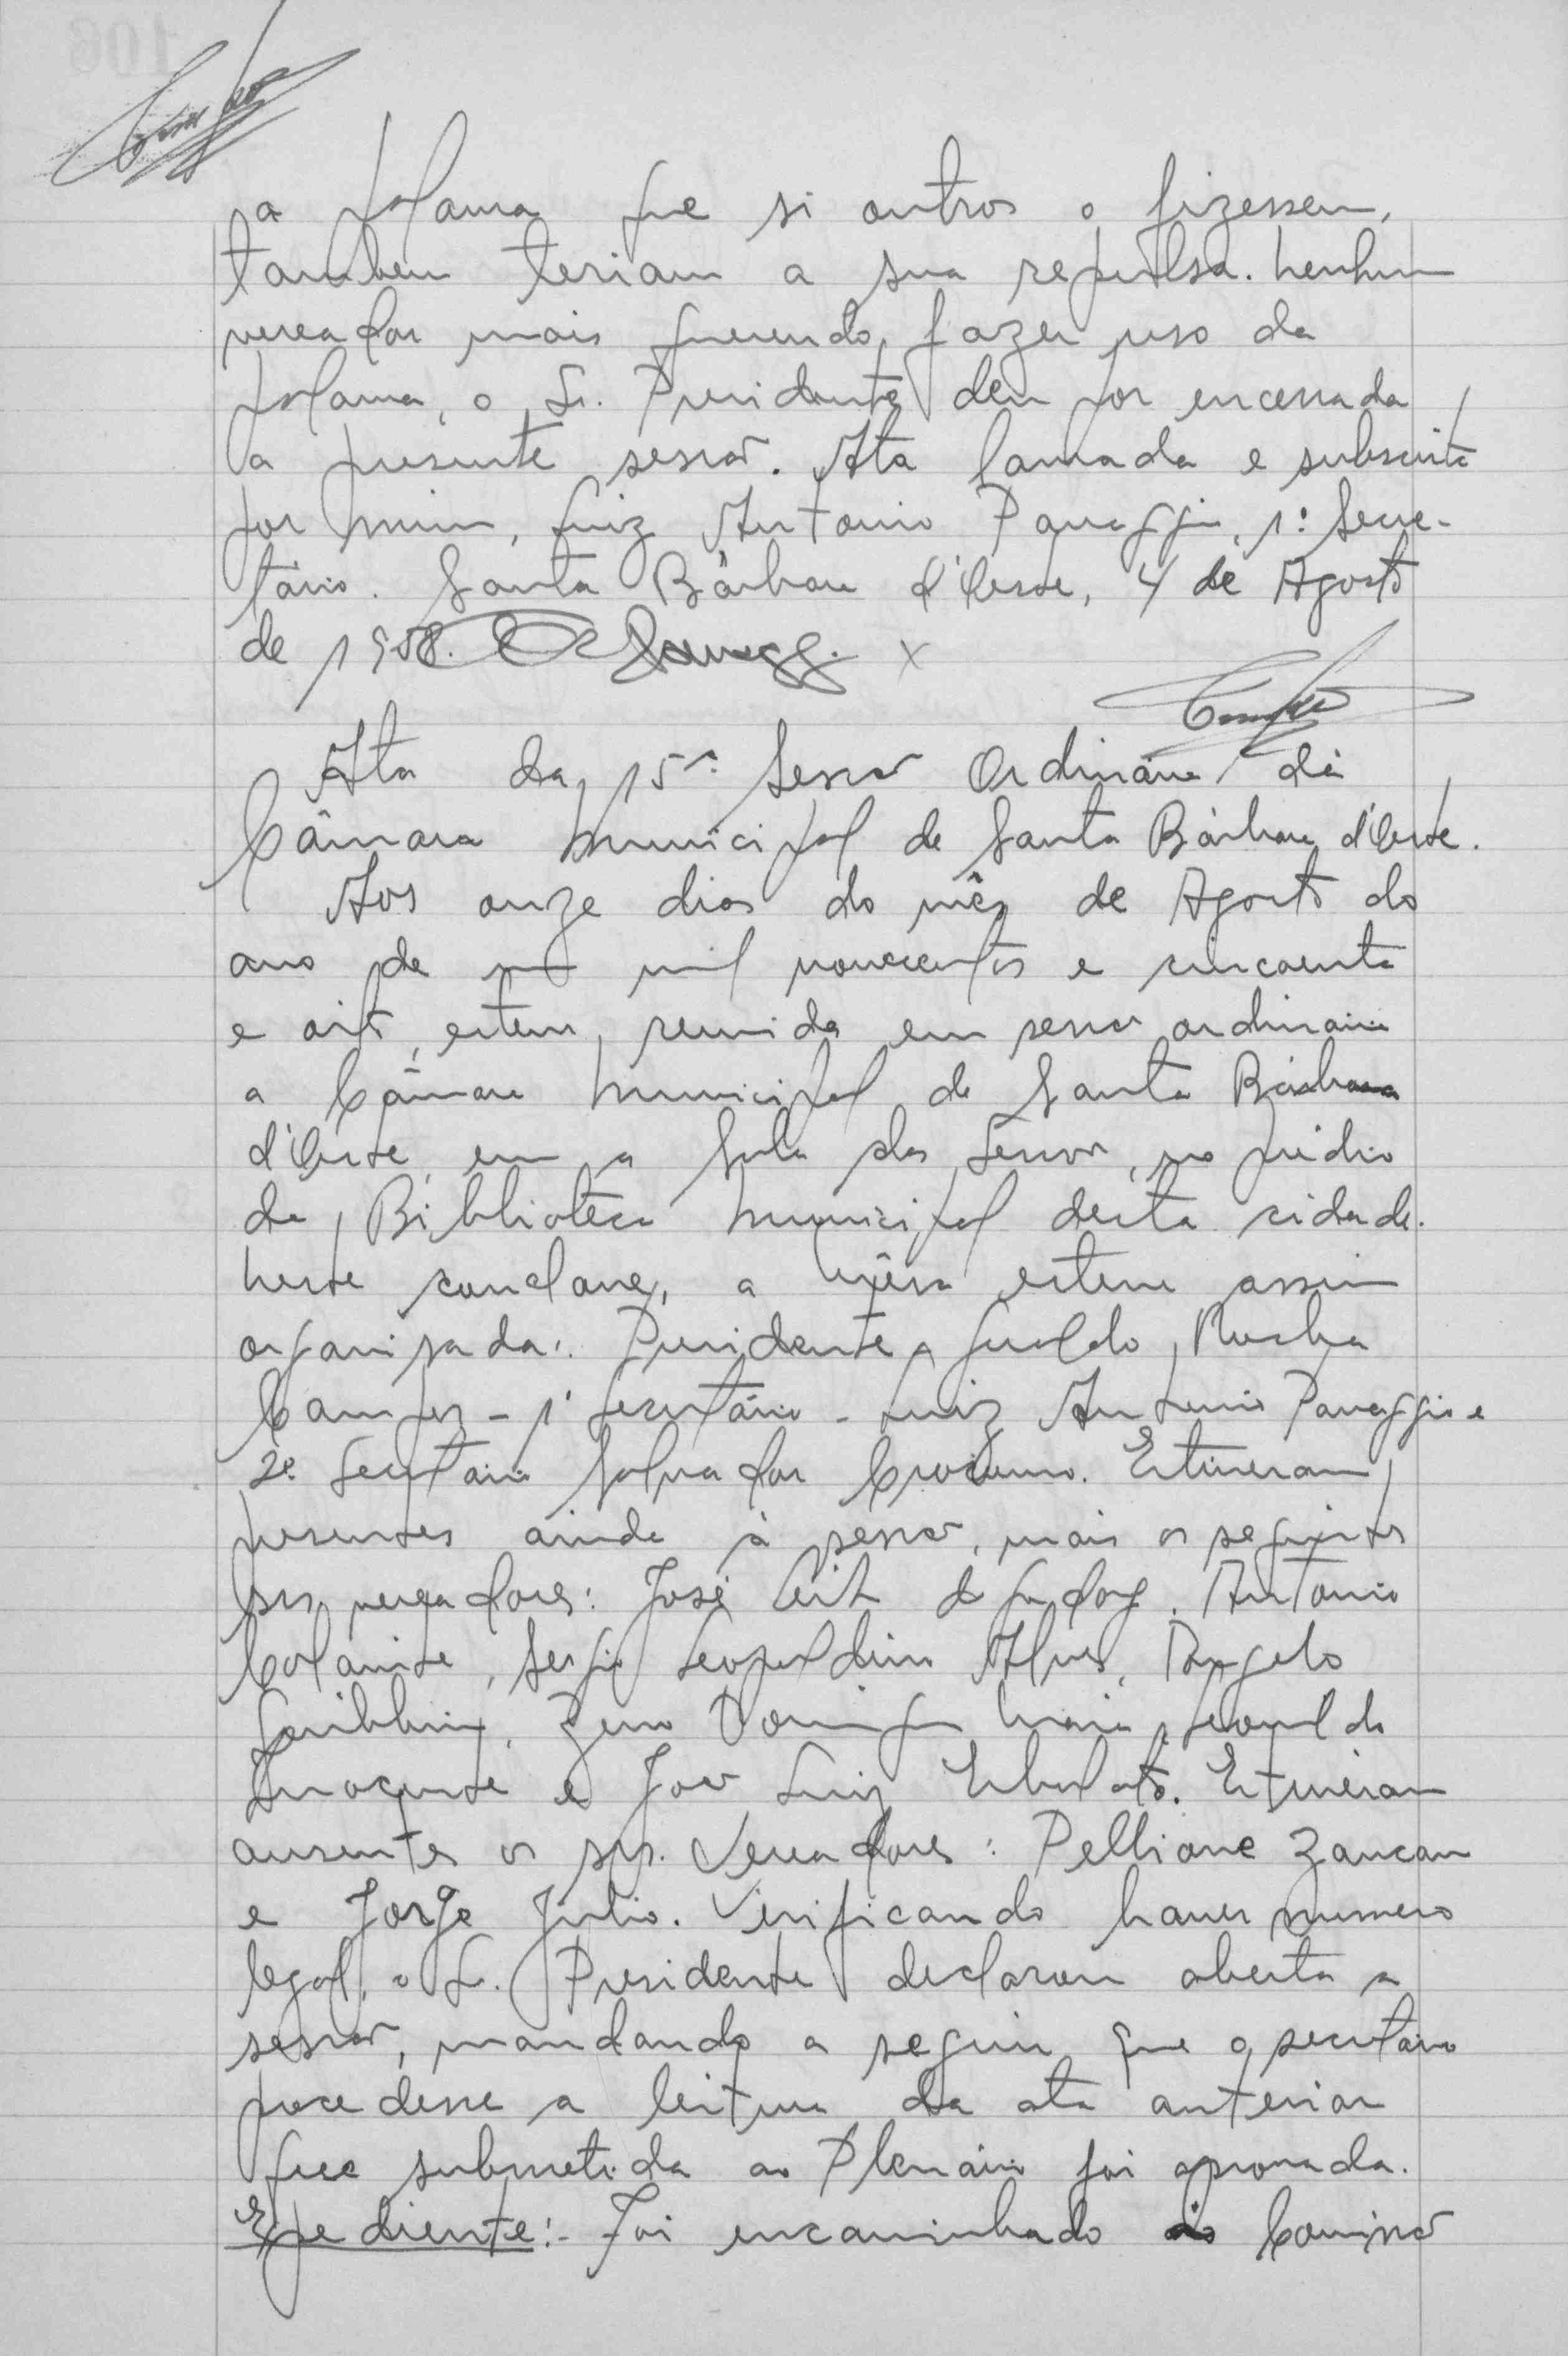 a palavra que si outros o fizessem,
tambem teriam a sua repulsa. Nenhum
vereador mais querendo fazer uso da
palavra, o Sr. Presidente deu por encerrada
a presente sessão. Ata lavrada e subscrita
por mim, Luiz Antonio Panaggio, 1º Secre-
tário. Santa Bárbara d'Oeste, 4 de Agosto
de 1958.
Ata da 15ª Sessão Ordinária da
Câmara Municipal de Santa Bárbara d'Oeste.
Aos onze dias do mês de Agosto do
ano de mil novecentos e cincoenta
e oito, esteve reunida em sessão ordinária
a Câmara Municipal de Santa Bárbara
d'Oeste, em a Sala das Sessões, no prédio
da Biblioteca Municipal desta cidade.
Neste conclave, a mêsa esteve assim
organisada: Presidente, Geraldo Rocha
Campos - 1º Secretário - Luiz Antonio Panaggio e
2º Secretário Salvador. Estiveram
presentes ainda à sessão, mais os seguintes
srs. vereadores: José de Godoy, Antonio
Sergio Leopoldino Alves, Angelo
Zeno Domingos Maia, Leonildo
Inocente e João Luiz. Estiveram
ausentes os srs. Vereadores: Zancan
e Jorge Julio. Verificando haver numero
legal, o Sr. Presidente declarou aberta a
sessão, mandando a seguir que o secretário
procedesse a leitura da ata anterior
que submetida ao Plenário foi aprovada.
Expediente:- Foi encaminhado às Comissão